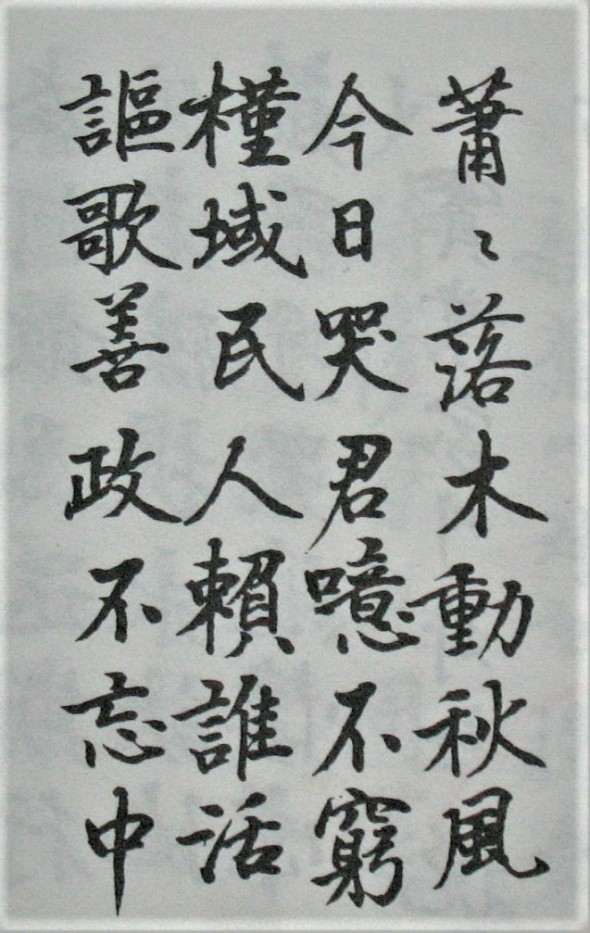 蕭〻落木動秋風
今日哭君噫不窮
槿域民人賴誰活
謳歌善政不忘中